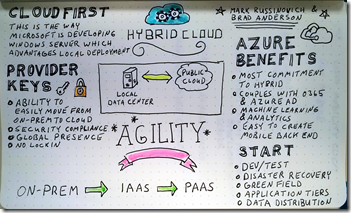 CLOUD FIRST
THIS IS THE WAY
MICROSOFT IS DEVELOPING
WINDOWS SERVER WHICH
ADVANTAGES LOCAL DEPLOYMENT
HYBRID CLOUD
MARK RUSSINOVICH &
BRAD ANDERSON
PROVIDER
KEYS
• ABILITY TO
EASILY MOVE FROM
ON-PREM TO CLOUD
• SECURITY COMPLIANCE
• GLOBAL PRESENCE
• NO LOCKIN
LOCAL
DATA CENTER
PUBLIC
CLOUD
AGILITY
AZURE
BENEFITS
• MOST COMMITMENT
TO HYBRID
• COUPLES WITH O365
& AZURE AD
• MACHINE LEARNING
& ANALYTICS
• EASY TO CREATE
MOBILE BACK END
START
• DEV/TEST
• DISASTER RECOVERY
• GREEN FIELD
• APPLICATION TIERS
• DATA DISTRIBUTION
ON-PREM IAAS PAAS